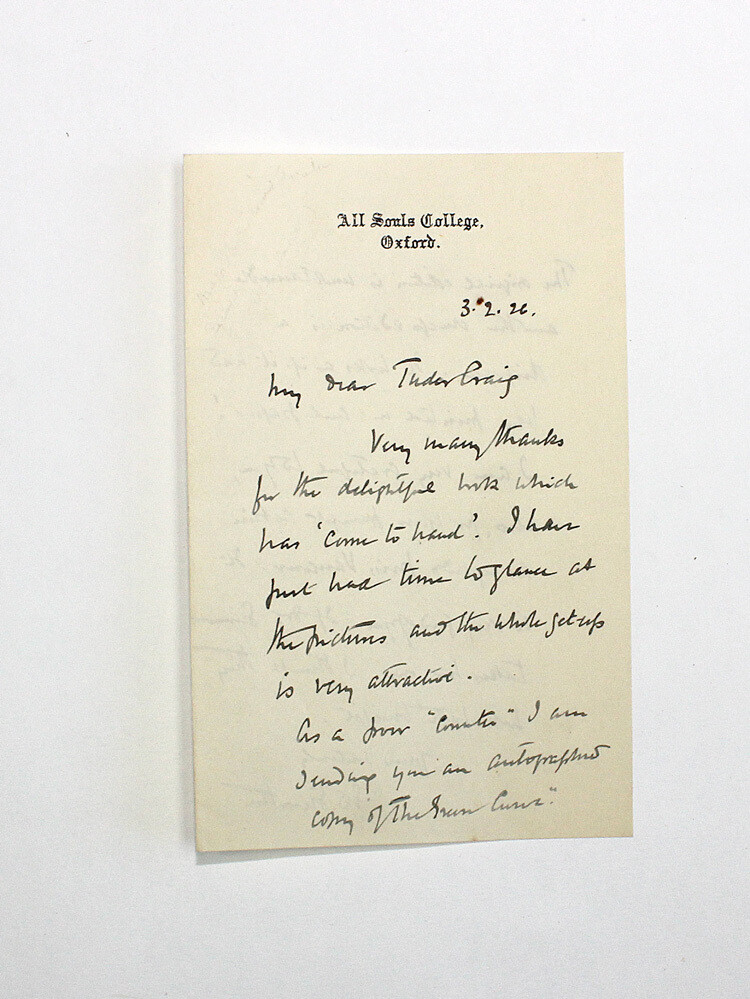 All Souls College,
Oxford.
3.2.26.
My dear Tudor Craig
Very many thanks
for the delightful book which
has 'come to hand'. I have
just had time to glance at
the pictures and the whole get up
is very attractive.
As a poor "counter" I am
sending you an autographed
copy of "The Green Curve".